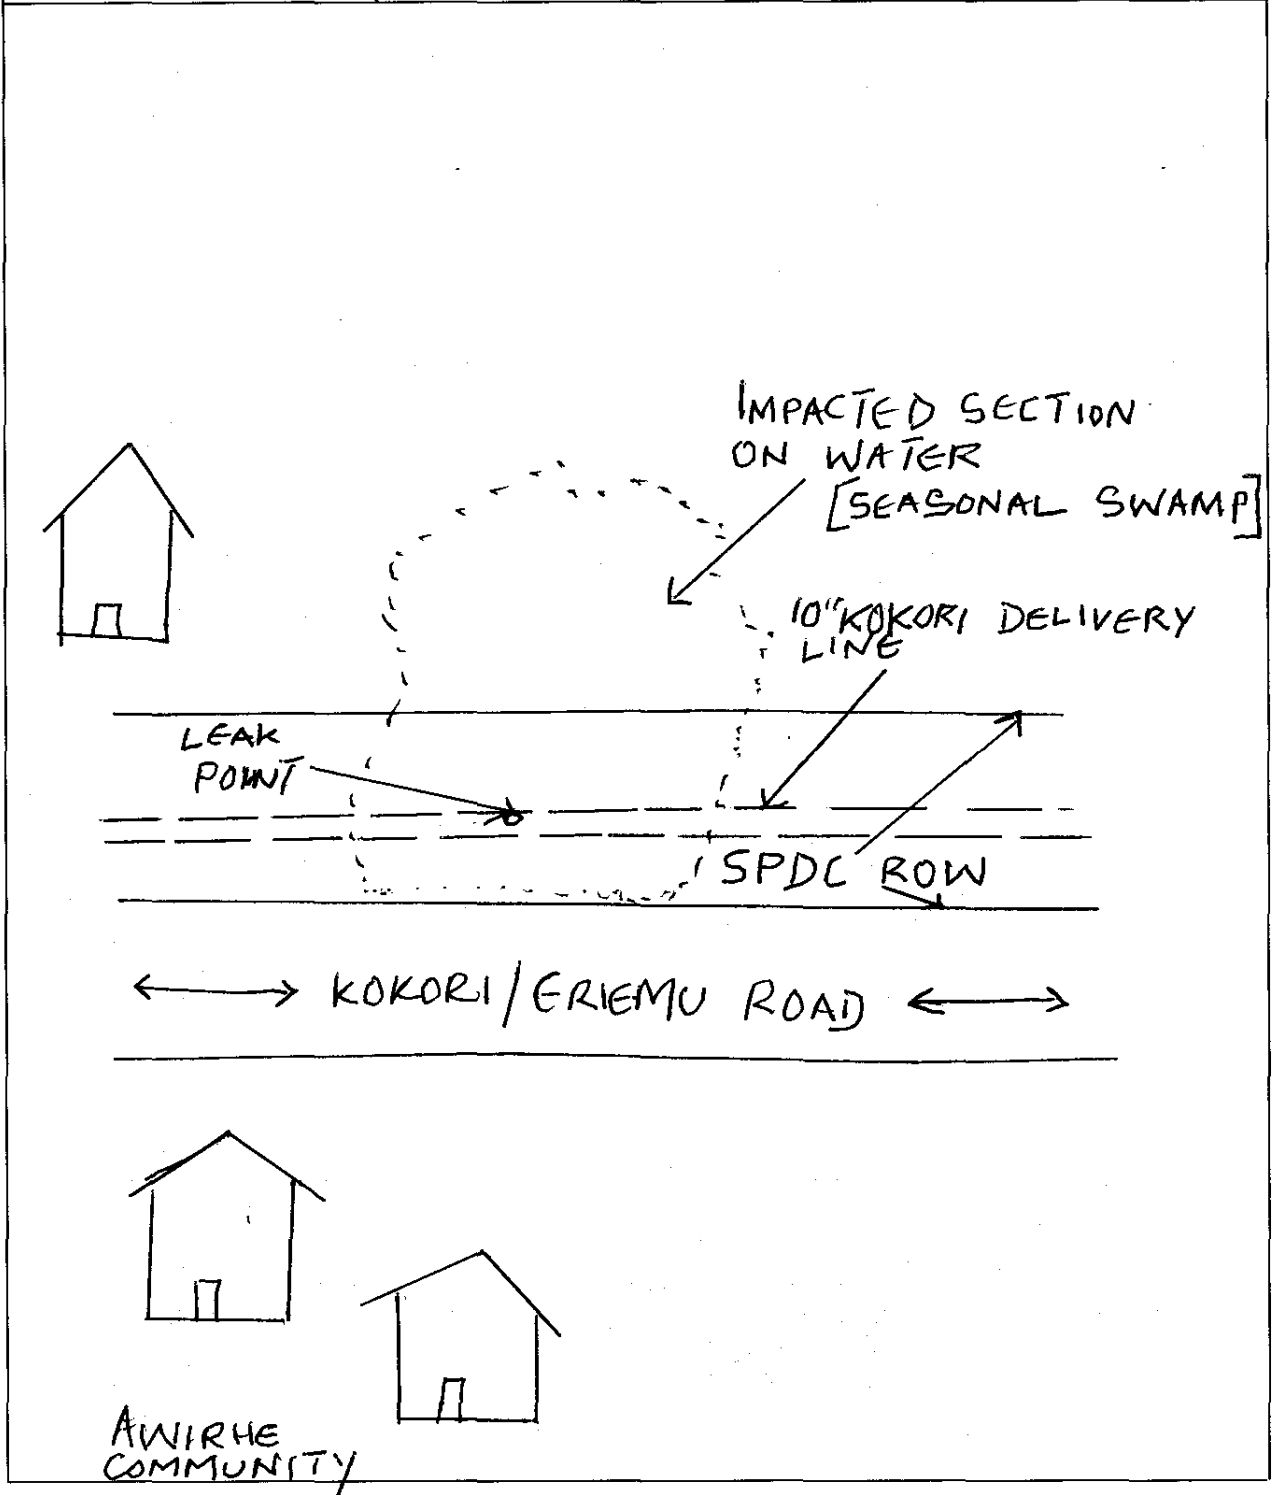 IMPACTED SECTION
ON WATER
[SEASONAL SWAMP]
10" KOKORI DELIVERY
LINE
LEAK
POINT
SPDC ROW
KOKORI/ERIEMU ROAD
AWIRHE
COMMUNITY